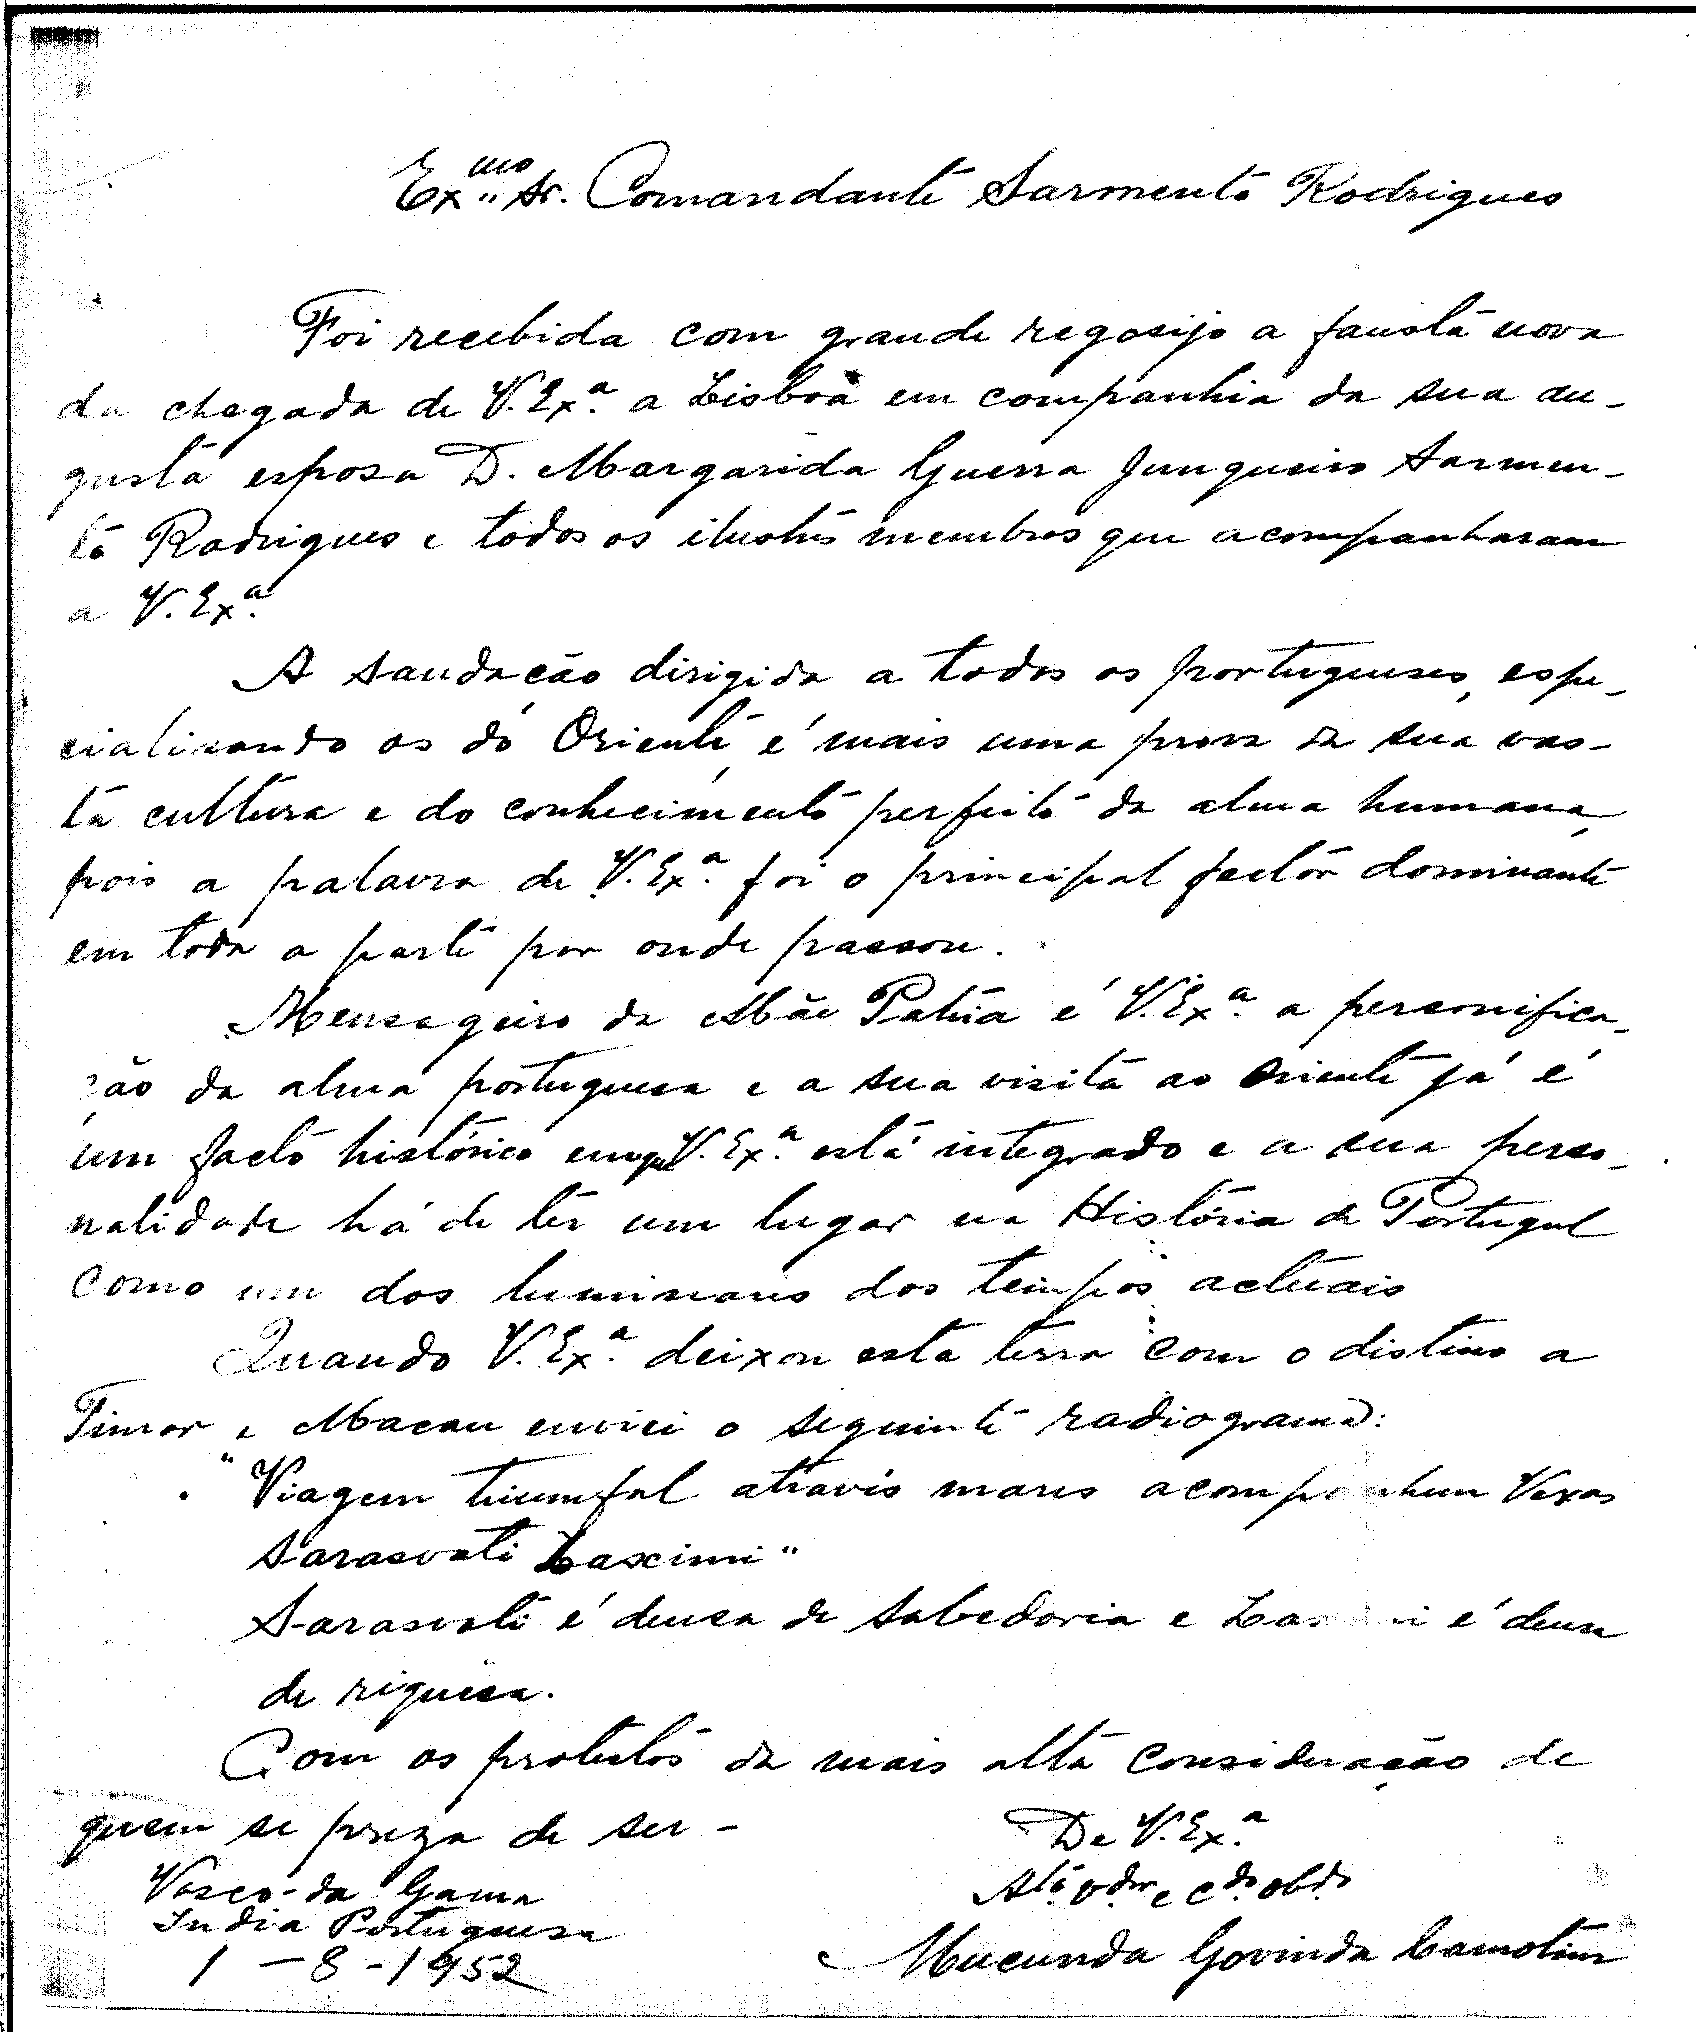 Ex.mo Sr. Comandante Sarmento Rodrigues
Foi recebida com grande regosijo a fausta nova
da chegada de V. Ex.a a Lisboa em companhia da sua au-
gusta esposa D. Margarida Guerra Junqueiro Sarmen-
to Rodrigues e todos os ilustres membros que acompanharam
a V. Ex.a
A saudação dirigida a todos os portugueses, espe-
cialisando os do Oriente, é mais uma prova da sua vas-
ta cultura e do conhecimento perfeito da alma humana,
pois a palavra de V. Ex.a foi o principal factor dominante
em toda a parte por onde passou.
Mensageiro da Mãe Patria é V. Ex.a a personifica-
ção da alma portuguesa e a sua visita ao Oriente já é
um facto histórico em que V. Ex.a está integrado e a sua perso-
nalidade há de ter um lugar na História de Portugal
como um dos luminares dos tempos actuais
Quando V. Ex.a deixou esta terra com o distino a
Timor e Macau enviei o seguinte radiograma:
"Viagem triumfal através mares acompanhem Vexas
Sarasvati Laxcimi"
Sarasvati é deusa de sabedoria e é deusa
de riquesa.
Com os protestos da mais alta consideração de
quem se preza de ser -
De V. Ex.a
Ato. Vdor. e Cdo. Obdo.
Vasco-da Gama
India Portuguesa
1-8-1952
Mucunda Govinda Camotim